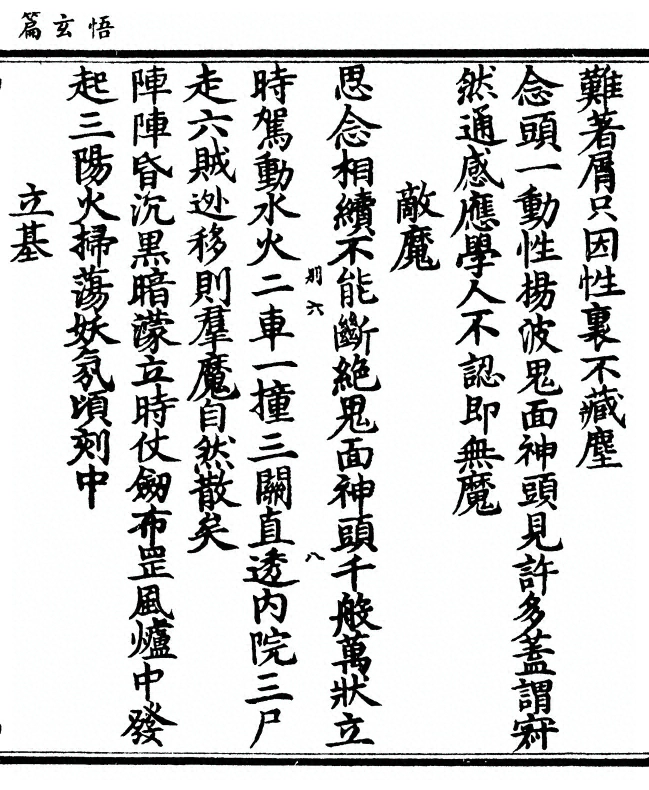 悟玄篇
難著屑只因性裏不藏塵
念頭一動性揚波鬼面神頭見許多蓋謂𡨋
然通感應學人不認即無魔
敵魔
思念相續不能斷絶鬼面神頭千般萬狀立
時駕動水火二車一撞三關直透内院三尸
走六賊迯移則羣魔自然散矣
陣陣昏沉黒暗濛立時仗劔布罡風爐中發
起三陽火掃蕩妖氛頃刻中
立基
別六
八